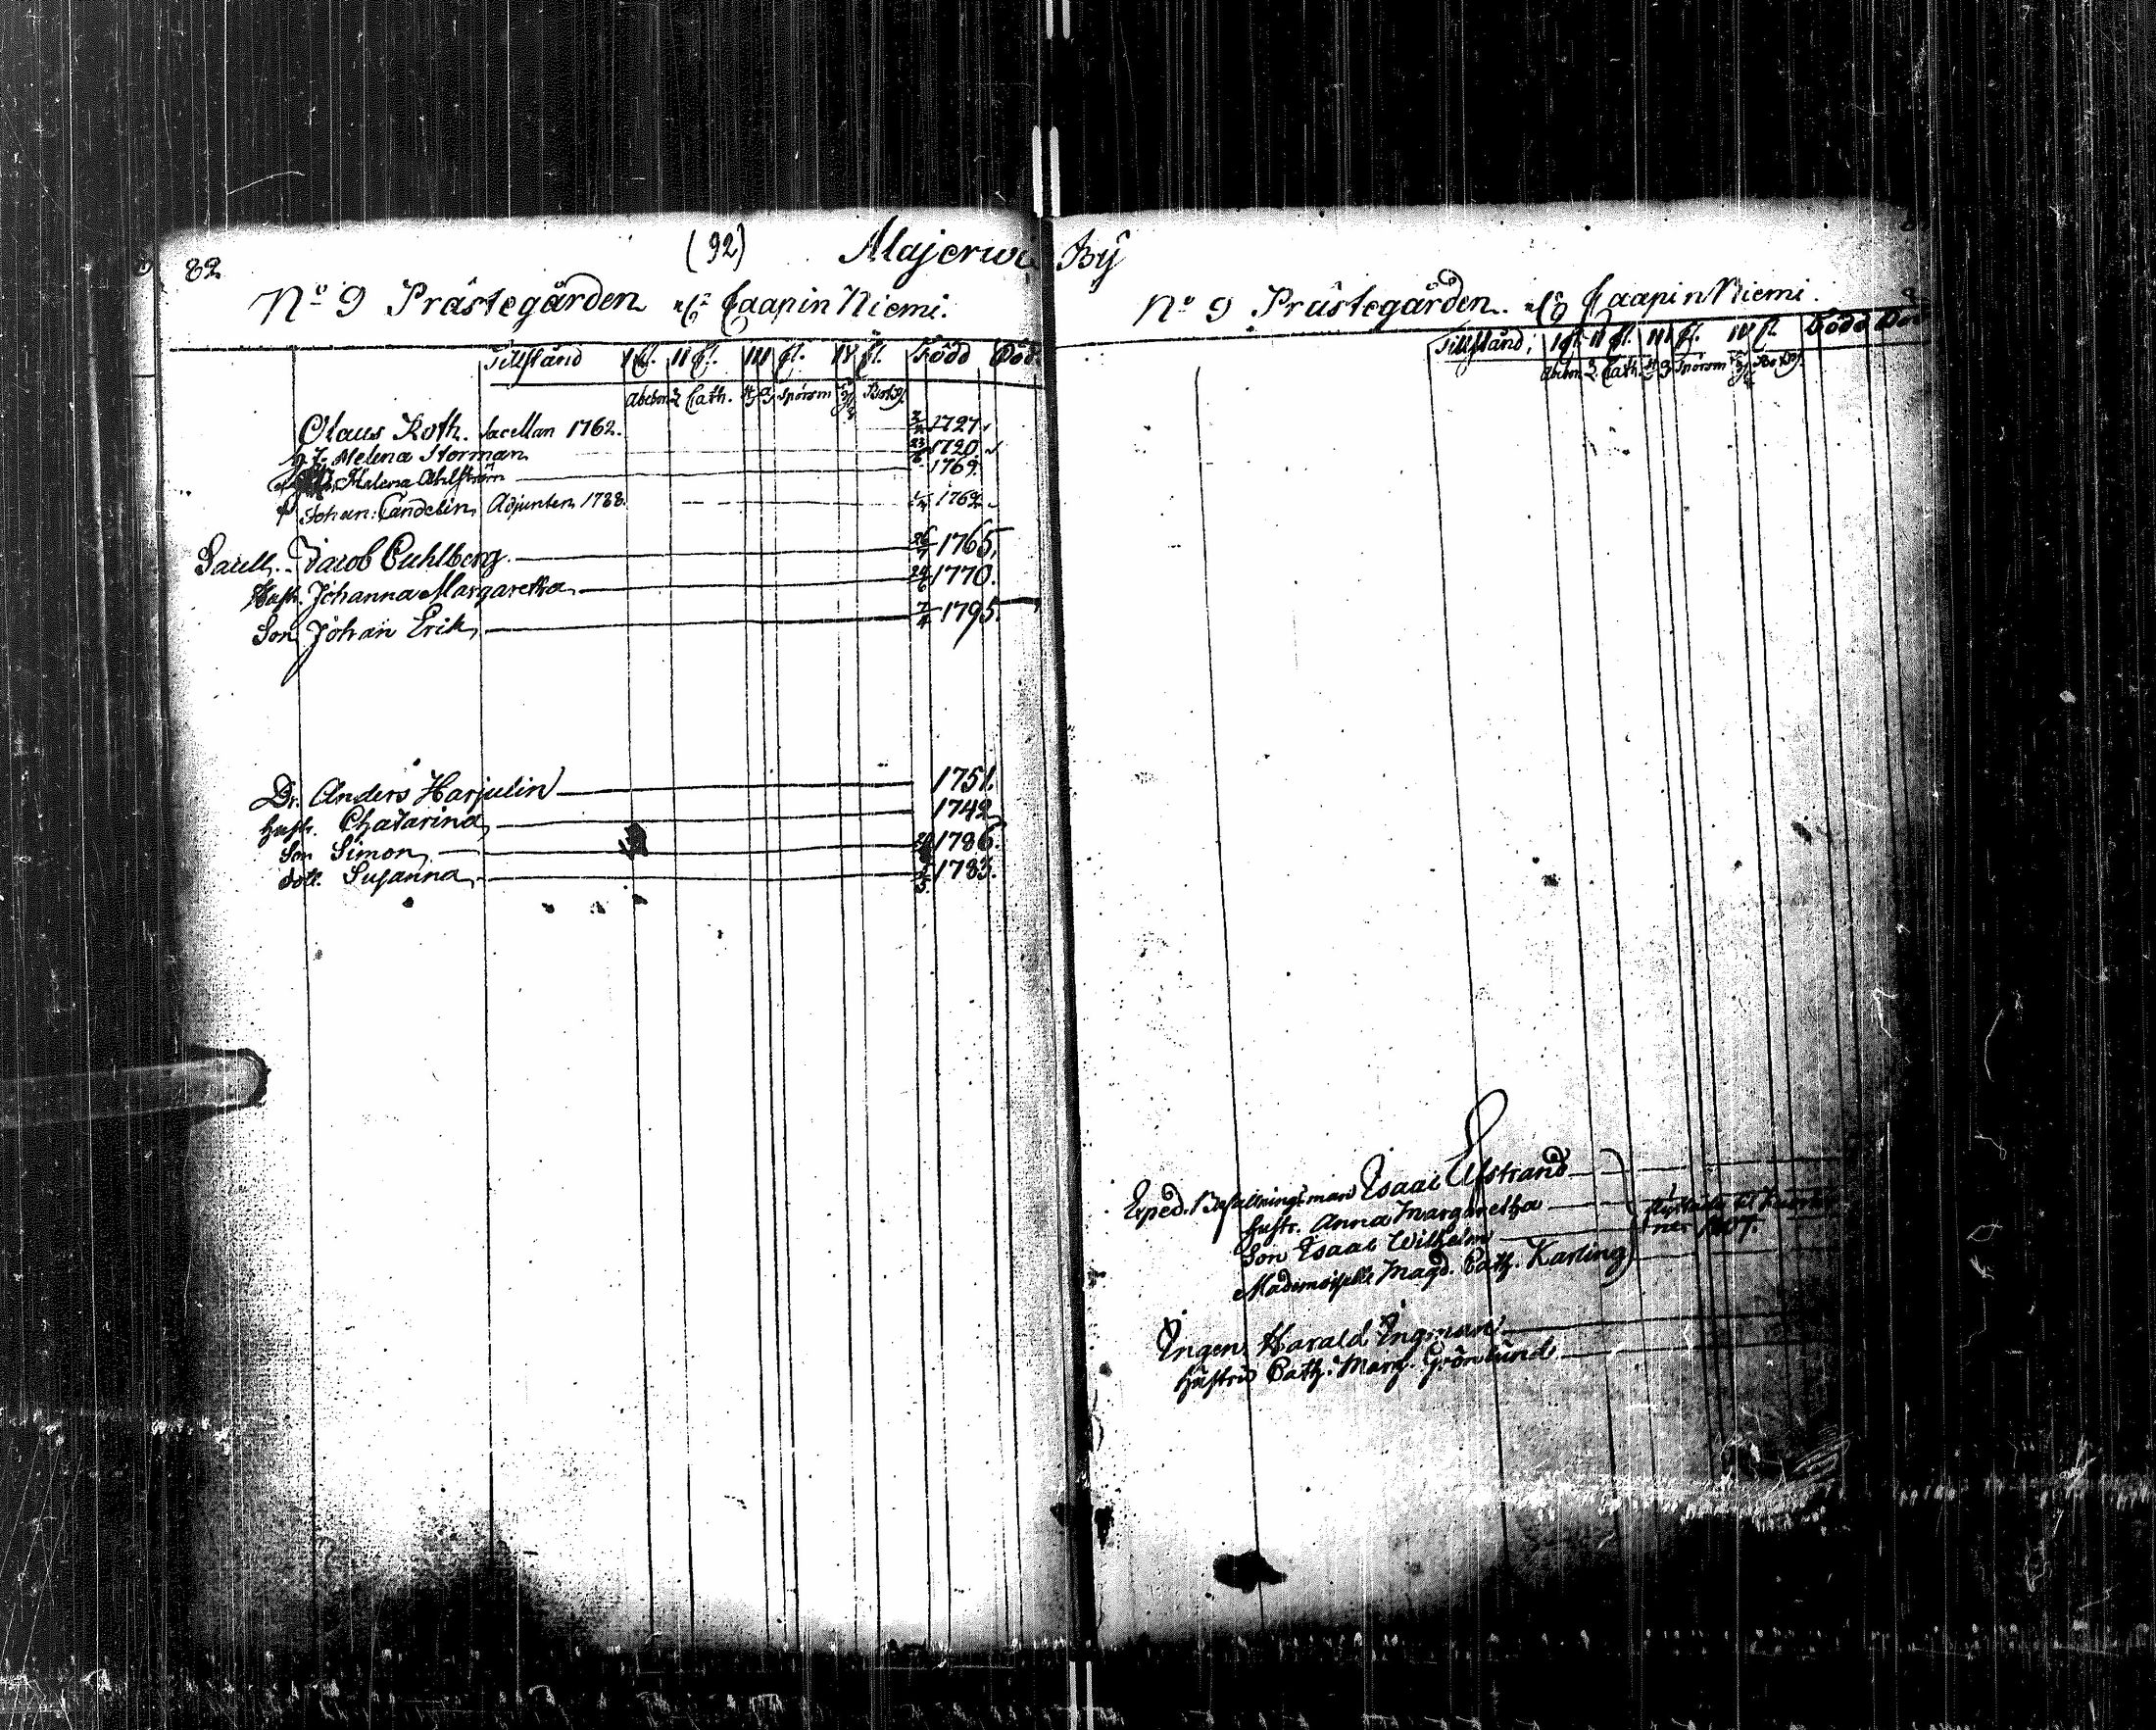 82
(92) Majerwa By
No 9 Prästegården Caapin Niemi.
Tillstånd I fl. II fl. III fl. IV fl. Född Död.
Abcbon Cath. Spörsm
Olaus Roth. Sacellan 1762. 1727.
Helena Storman 1720.
Helena Ahlström 1769.
Johan: Candelin, Adjuncten 1788. 1762
Sacell. Jacob Cuhlberg 26/7 1765.
Hustr. Johanna Margaretha 24/6 1770.
Son Johan Erik 7/4 1795.
Dr. Anders Harjulin 1751.
hustr. Chatarina 1742
Son Simon 1786.
dott. Susanna 1783.
No 9 Prästegården. Caapin Niemi.
Tillstånd, I fl. II fl. III fl. IV fl. Född Död
Abcbon Cath. Spörsm
Exped. Befallningsman Esaac Ulfstrand
hustr. Anna Margaretha
Son Esaac Wilhelm
Mademoiselle Magd. Cath. Karling
Ingen. Harald Ingman
hustru Cath. Marg. Grönlund